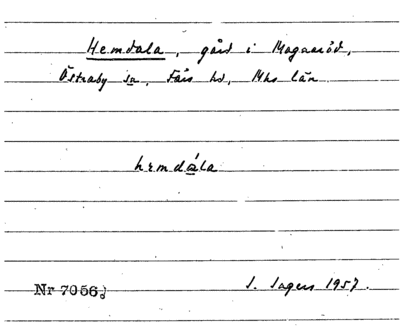 Hemdala, gård i Magaröd,
Östraby sn, Färs hd, Mhs län
hemdála
Nr 7056.
1957.